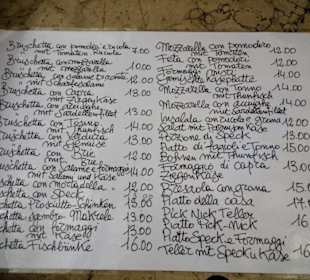 Bruschetta con pomodoro e rucola 7.00
mit Tomaten Rucola
Bruschetta con mozzarella 10.00
mit mozzarella
Bruschetta con 12.00
mit
Bruschetta con 13.00
mit Ziegenkäse
Bruschetta con acciughe 14.00
mit Sardellenfilet
Bruschetta con Tonno 14.00
mit Thunfisch
Bruschetta con Verdure 13.00
mit Gemüse
Bruschetta con Brie 12.00
mit Brie
con salame e formaggi 14.00
mit Salami und Käse
con mortadella 12.00
con Speck 12.00
Prosciutto-Schinken 13.00
Sgombro Makrele 13.00
con formaggi 13.00
mit Käse
Fischbrötke 16.00
Mozzarella con pomodoro 12.00
mit Tomaten
Feta con pomodori 12.00
mit Tomaten
Formaggi misti 14.00
Gemischte Käseplatte
Mozzarella con Tonno 14.00
mit Thunfisch
Mozzarella con acciughe 14.00
mit Sardellenfilet
Insalata con rucola e grana 12.00
Salat mit Parmesan Käse
Porzione di Speck 13.00
Piatto di fagioli e Tonno 15.00
Bohnen mit Thunfisch
Formaggio di capra 13.00
Ziegenkäse
Bresaola con grana 15.00
Piatto casa 17.00
Pick Nick Teller 16.
Piatto Pick-Nick
Piatto Speck e Formaggi
Teller mit Speck u Käse 16.00